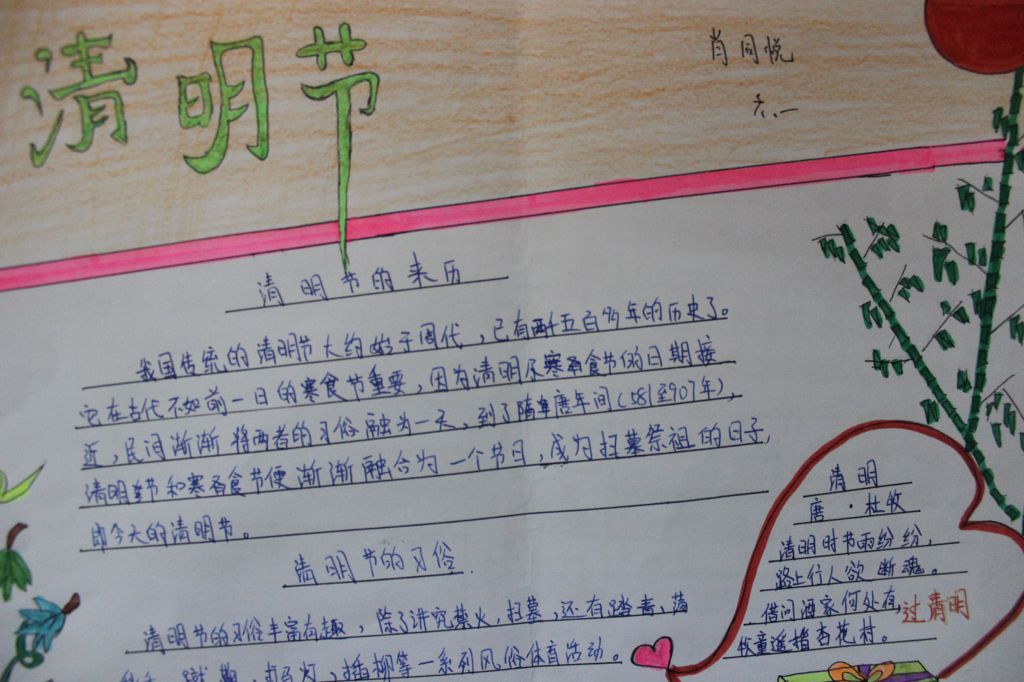 清明节
肖同悦
六.一
清明节的来历
我国传统的清明节大约始于周代，已有两千五百多年的历史了。
它在古代不如前一日的寒食节重要，因为清明及寒食节的日期接
近，民间渐渐将两者的习俗融为一天，到了隋唐年间（581至907年），
清明节和寒食节便渐渐融合为一个节日，成为扫墓祭祖的日子，
即今天的清明节。
清明节的习俗
清明节的习俗丰富有趣，除了讲究禁火，扫墓，还有踏青，荡
秋千，蹴鞠，打马灯，插柳等一系列风俗体育活动。
清明
唐·杜牧
清明时节雨纷纷，
路上行人欲断魂。
借问酒家何处有，
牧童遥指杏花村。
过清明